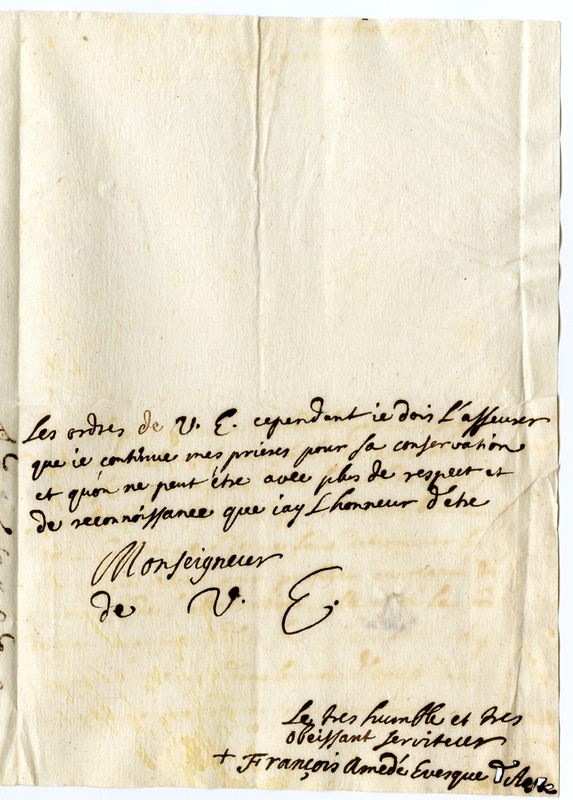 Les ordres de V. E. cependant ie dois L'asseurer
que ie continue mes prieres pour sa conservation
et qu'on ne peut être avec plus de respect et
de reconnoissance que iay Lhonneur d'etre
Monseigneur
de V. E.
Le tres humble et tres
obeissant serviteur
+ François Amedé Evesque d'Aoste